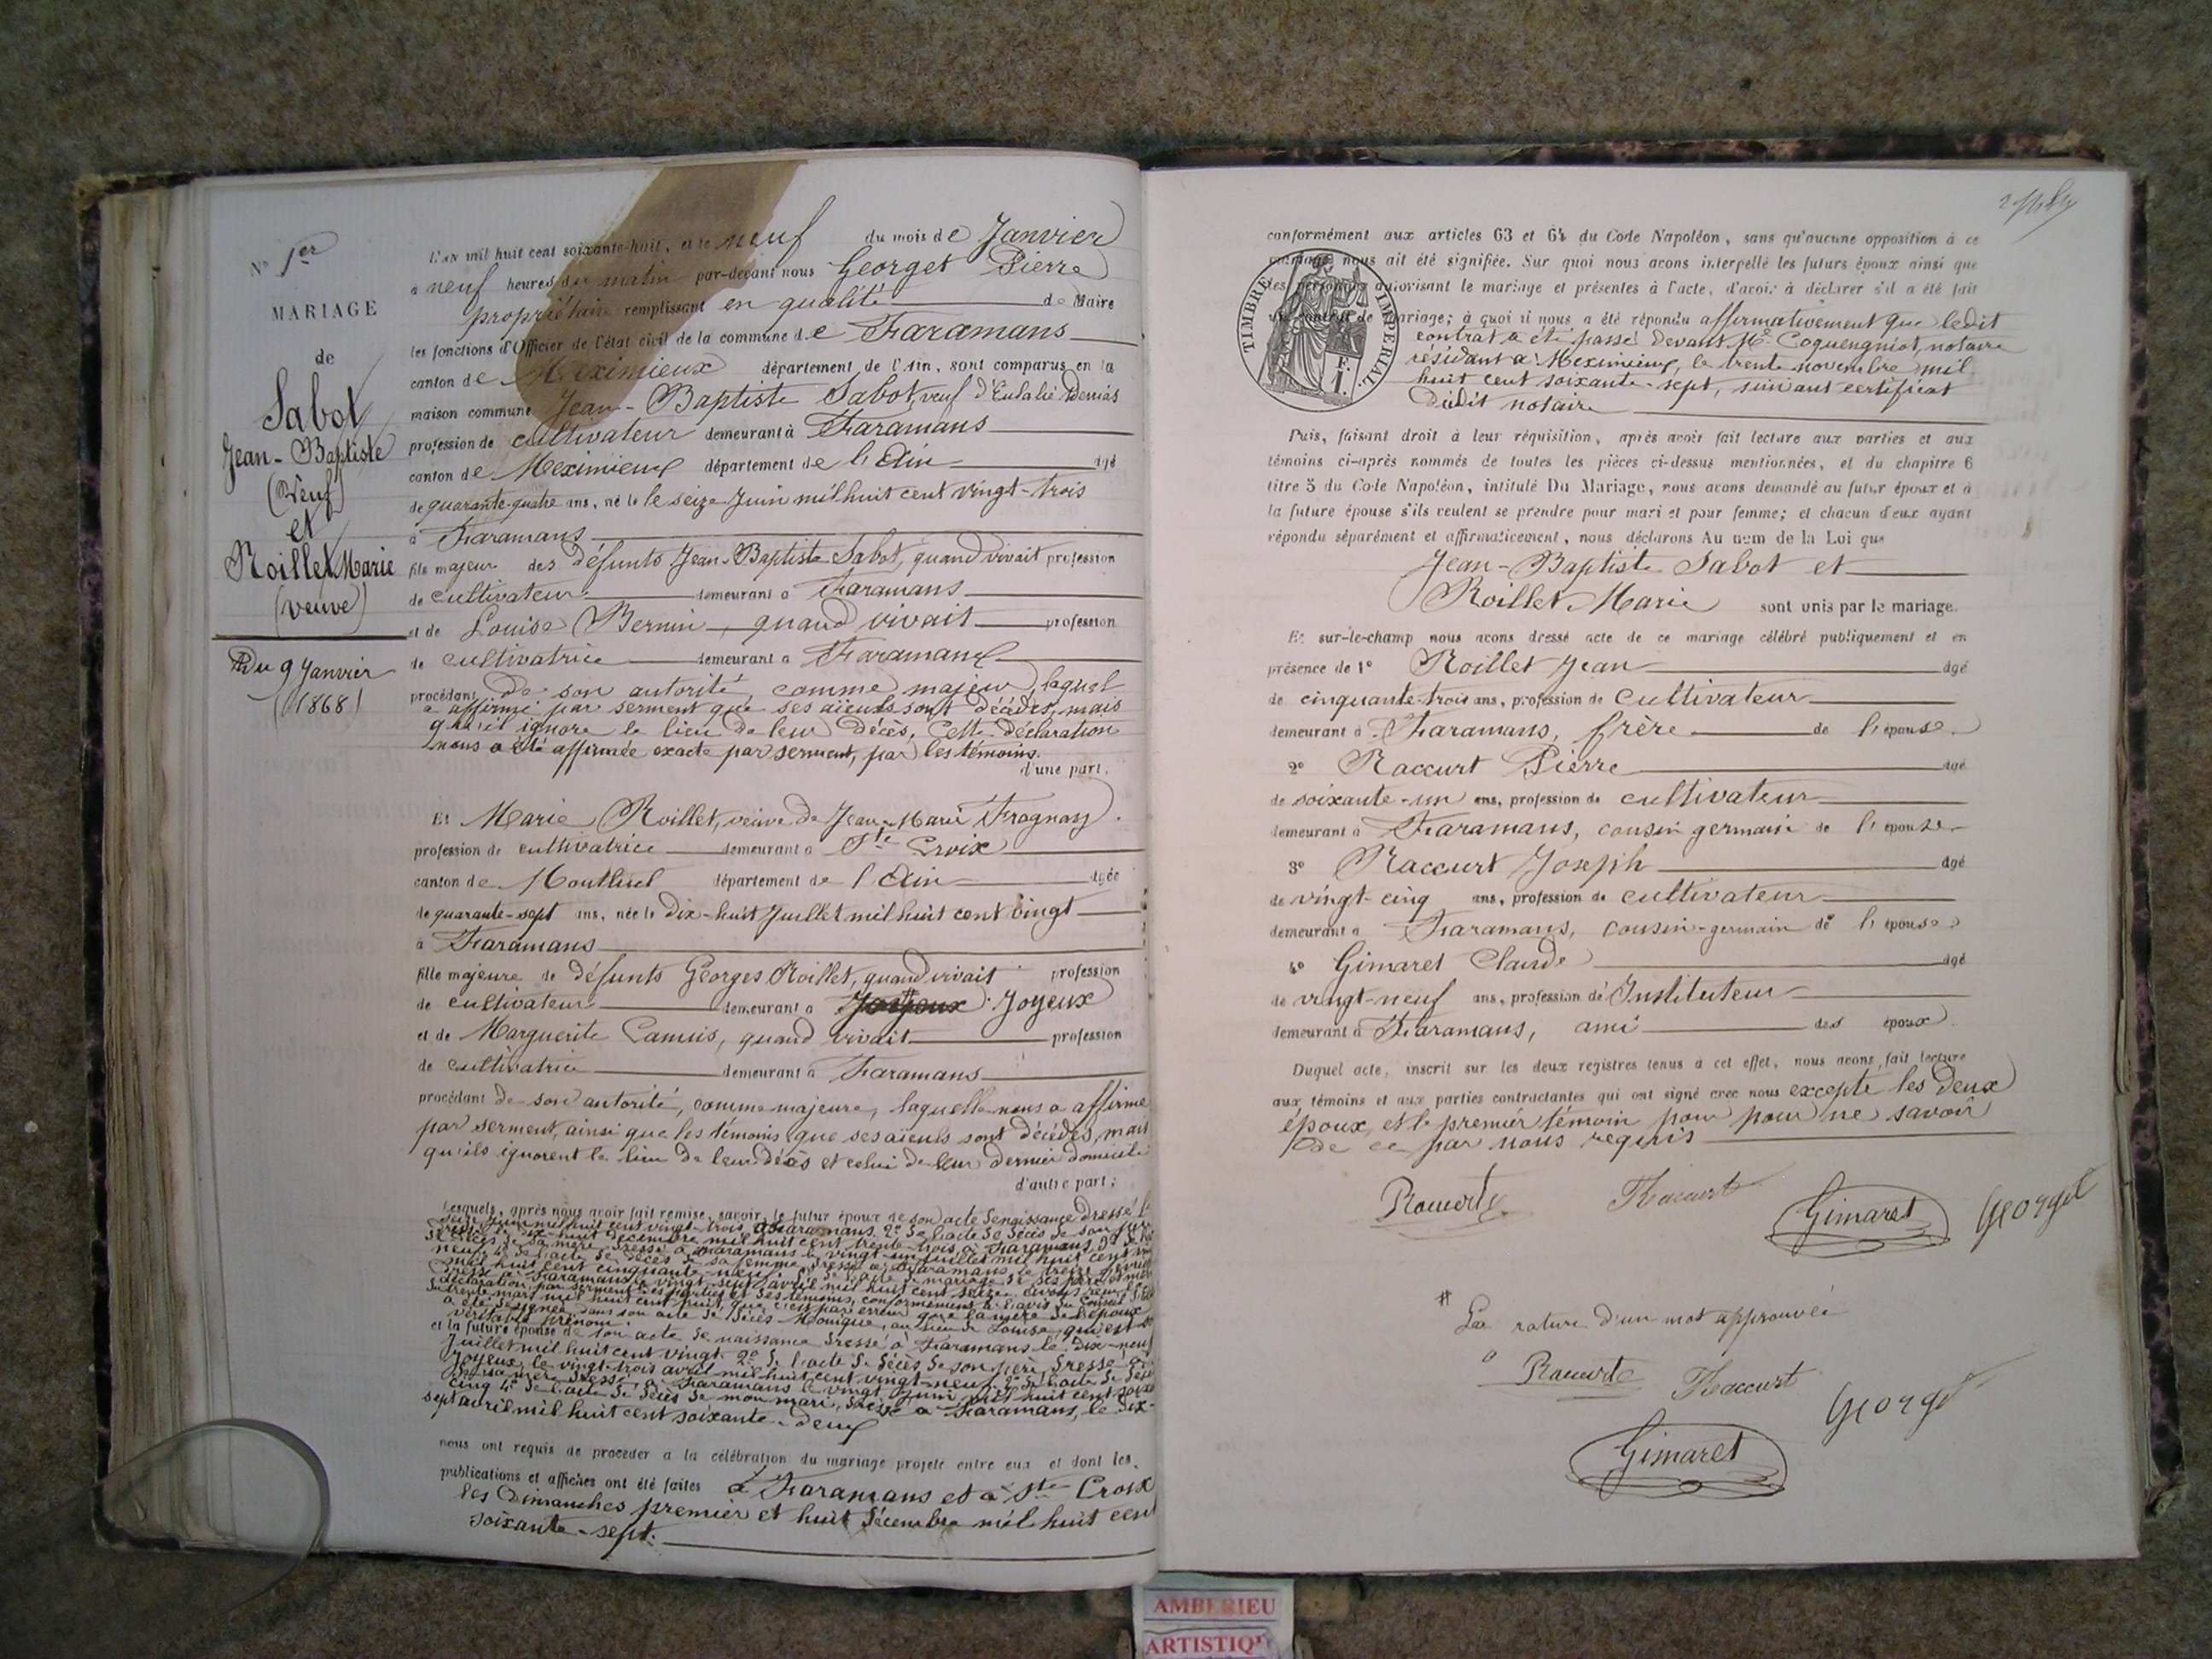 N° 1er
MARIAGE
de
Sabot
Jean-Baptiste
(Veuf)
et
Roillet Marie
(veuve)
Du 9 Janvier
1868
L'an mil huit cent soixante-huit, et le neuf du mois de Janvier
à neuf heures du matin par-devant nous Georget Pierre
propriétaire remplissant en qualité de Maire
les fonctions d'Officier de l'état civil de la commune de Faramans
canton de Meximieux département de l'Ain, sont comparus en la
maison commune Jean-Baptiste Sabot, veuf d'Eulalie
profession de cultivateur demeurant à Faramans
canton de Meximieux département de l'Ain âgé
de quarante-quatre ans, né le le seize Juin mil huit cent vingt-trois
à Faramans
fils majeur des défunts Jean-Baptiste Sabot, quand vivait profession
de cultivateur demeurant à Faramans
et de Louise Bernin, quand vivait profession
de cultivatrice demeurant à Faramans
procédant de son autorité, comme majeur, lequel
a affirmé par serment que ses aïeuls sont décédés, mais
qu'il ignore le lieu de leur décès. Cette déclaration
nous a été affirmée exacte par serment, par les témoins.
d'une part.
Et Marie Roillet, veuve de Jean-Marie Fragnay
profession de cultivatrice demeurant à Ste Croix
canton de Montluel département de l'Ain âgée
de quarante-sept ans, née le Dix-huit Juillet mil huit cent vingt
à Faramans
fille majeure de défunts Georges Roillet, quand vivait profession
de cultivateur demeurant à Joyeux
et de Marguerite Camus, quand vivait profession
de cultivatrice demeurant à Faramans
procédant de son autorité, comme majeure, laquelle nous a affirmé
par serment, ainsi que les témoins que ses aïeuls sont décédés, mais
qu'ils ignorent le lieu de leur décès et celui de leur dernier domicile
d'autre part;
Lesquels, après nous avoir fait remise, savoir, le futur époux de son acte de naissance dressé le
seize Juin mil huit cent vingt-trois, à Faramans, 2° de l'acte de décès de son père
dressé le dix-huit décembre mil huit cent trente-trois, à Faramans, 3° de
décès de sa mère dressé à Faramans le vingt-un juillet mil huit cent
neuf, 4° de l'acte de décès de sa femme, dressé à Faramans le treize
mil huit cent cinquante-neuf, 5° de l'acte de mariage de ses père et mère
dressé à Faramans le vingt-sept avril mil huit cent seize,
déclaration par serment des parties et des témoins, conformément à l'avis du Conseil
du trente mars mil huit cent huit, que c'est par erreur que la mère de l'époux
a été désignée, dans son acte de décès Monique, au lieu de Louise, qui est
véritable prénom.
et la future épouse de son acte de naissance dressé à Faramans le dix-neuf
Juillet mil huit cent vingt 2° de l'acte de décès de son père dressé à
Joyeux, le vingt-trois avril mil huit cent vingt-neuf 3° de l'acte de
de sa mère dressé, à Faramans le vingt Juin mil huit cent
cinq 4° de l'acte de décès de mon mari, dressé à Faramans, le dix-
sept avril mil huit cent soixante-deux
nous ont requis de procéder à la célébration du mariage projeté entre eux et dont les
publications et affiches ont été faites à Faramans et à Ste Croix
les Dimanches premier et huit décembre mil huit cent
soixante-sept.
conformément aux articles 63 et 64 du Code Napoléon, sans qu'aucune opposition à ce
mariage nous ait été signifiée. Sur quoi nous avons interpellé les futurs époux ainsi que
les personnes autorisant le mariage et présentes à l'acte, d'avoir à déclarer s'il a été fait
un contrat de mariage; à quoi il nous a été répondu affirmativement que ledit
contrat a été passé devant Me Coquengniot, notaire
résidant à Meximieux, le trente novembre mil
huit cent soixante-sept, suivant certificat
dudit notaire
TIMBRE IMPERIAL
1 F.
Puis, faisant droit à leur réquisition, après avoir fait lecture aux parties et aux
témoins ci-après nommés de toutes les pièces ci-dessus mentionnées, et du chapitre 6
titre 5 du Code Napoléon, intitulé Du Mariage, nous avons demandé au futur époux et à
la future épouse s'ils veulent se prendre pour mari et pour femme; et chacun d'eux ayant
répondu séparément et affirmativement, nous déclarons Au nom de la Loi que
Jean-Baptiste Sabot et
Roillet Marie sont unis par le mariage.
Et sur-le-champ nous avons dressé acte de ce mariage célébré publiquement et en
présence de 1° Roillet Jean âgé
de cinquante-trois ans, profession de cultivateur
demeurant à Faramans, frère de l'épouse
2° Raccurt Pierre âgé
de soixante-un ans, profession de cultivateur
demeurant à Faramans, cousin germain de l'épouse
3° Raccurt Joseph âgé
de vingt-cinq ans, profession de cultivateur
demeurant à Faramans, cousin-germain de l'épouse
4° Gimaret Claude âgé
de vingt-neuf ans, profession de Instituteur
demeurant à Faramans, ami des époux
Duquel acte, inscrit sur les deux registres tenus à cet effet, nous avons fait lecture
aux témoins et aux parties contractantes qui ont signé avec nous excepté les deux
époux, et le premier témoin pour pour ne savoir
de ce par nous requis
Raccurt Gimaret Georget
# La rature d'un mot approuvée
Raccurt Georget
Gimaret
AMBERIEU
ARTISTIQU